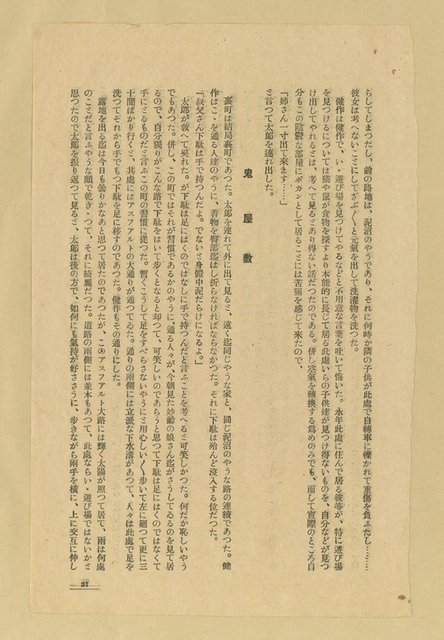 らしてしまつたし、前の路地は、泥沼のやうであり、それに何時か隣の子供が此處で自轉車に轢かれて重傷を負ふたし……
彼女は考へないことにしてざぶ〳〵と元氣を出して洗濯物を洗つた。
健作は健作で、い丶遊び場を見つけてやるなどと不用意な言葉を吐いて悔いた。永年此處に住んで居る彼等が、特に遊び場
を見つけるについては猫や鼠が食物を探すより本能的に長じて居る此處いらの子供達が見つけ得ないものを、自分などが見つ
け出してやれるとは、考へて見るとあり得ない話だつたのである。併し空氣を轉換する爲めのみでも、而して實際のところ自
分もこの陰鬱な部屋にポカンとして居ることには苦痛を感じて來たので、
「姉さん一寸出て來ます……」
と言つて太郎を連れ出した。
鬼屋敷
裏町は結局裏町であつた。太郎を連れて外に出て見ると、遠く迄同じやうな家と、同じ泥沼のやうな路の連續であつた。健
作はこ丶を通る人達のやうに、着物を臀部迄はし折らなければならなかつた。それに下駄は殆んど沒入する位だつた。
「叔父さん下駄は手で持つんだよ。でないと身體中泥だらけになるよ」
太郎が敎へて呉れた。が下駄は足にはくのではなしに手で持つんだと言ふことを考へると可笑しかつた。何だか恥しいやう
でもあつた。併し、この町ではそれが習慣であるかのやうに、通る人々が、今朝見た妙齡の娘さん迄がさうしてゐるのを見て居
るので、自分獨りがこんな路で下駄をはいて歩くとなると却つて、可笑しいのであらうと思つて下駄は足にはくのではなくて
手にとるものだと言ふこの町の習慣に從つた。暫くさうして足をすべらさないやうにと用心しい〳〵歩いて左に廻つて更に三
十間ばかり行くと、其處にはアスフアルトの大通りが通つてゐた。通りの兩側には立派な下水溝があつて、人々は此處で足を
洗つてそれから手でもつ下駄を足に移すのであつた。健作もその通りにした。
露地を出る迄は今日も曇りかなあと思つて居たのであつたが、このアスフアルト大路には輝く太陽が照つて居て、雨は何處
のことだと言ふやうな顏で乾き、つて、それに綺麗だつた。道路の兩側には並木もあつて、此處ならい丶遊び場ではないかと
思つたので太郎を振り返つて見ると、太郎は後の方で、如何にも氣持が好ささうに、歩きながら兩手を橫に、上に交互に伸し
21